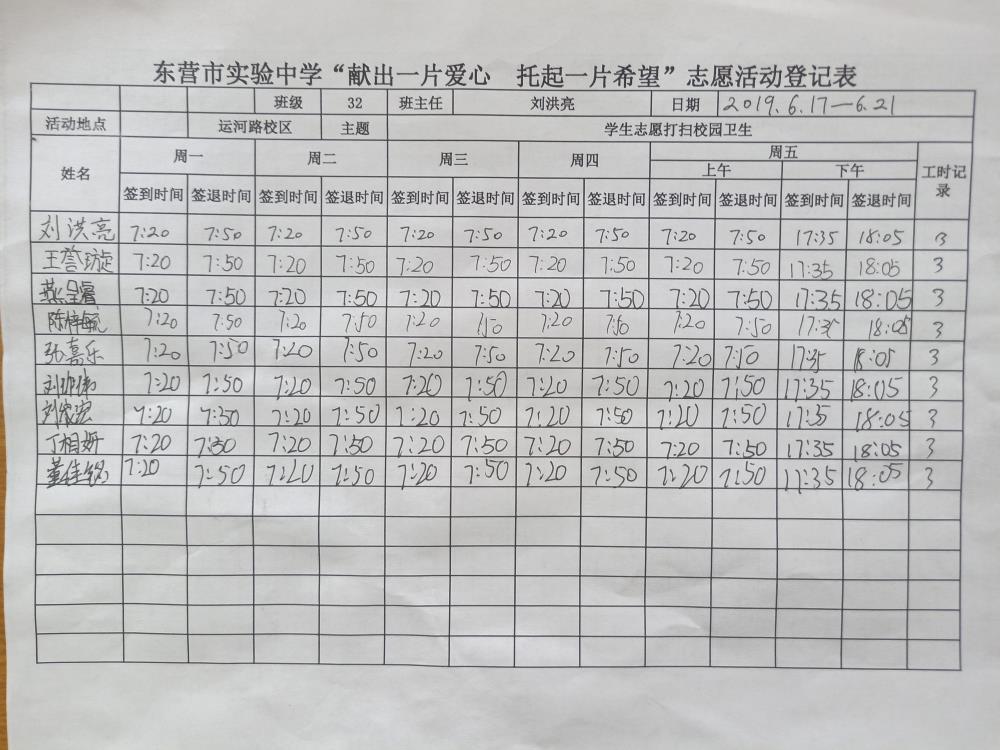 东营市实验中学“献出一片爱心 托起一片希望”志愿活动登记表
班级 32 班主任 刘洪亮 日期 2019.6.17—6.21
活动地点 运河路校区 主题 学生志愿打扫校园卫生
姓名 周一 周二 周三 周四 周五 工时记录
上午 下午
签到时间 签退时间 签到时间 签退时间 签到时间 签退时间 签到时间 签退时间 签到时间 签退时间 签到时间 签退时间
刘洪亮 7:20 7:50 7:20 7:50 7:20 7:50 7:20 7:50 7:20 7:50 17:35 18:05 3
王誉璇 7:20 7:50 7:20 7:50 7:20 7:50 7:20 7:50 7:20 7:50 17:35 18:05 3
7:20 7:50 7:20 7:50 7:20 7:50 7:20 7:50 7:20 7:50 17:35 18:05 3
陈梓毓 7:20 7:50 7:20 7:50 7:20 7:50 7:20 7:50 7:20 7:50 17:35 18:05 3
张嘉乐 7:20 7:50 7:20 7:50 7:20 7:50 7:20 7:50 7:20 7:50 17:35 18:05 3
7:20 7:50 7:20 7:50 7:20 7:50 7:20 7:50 7:20 7:50 17:35 18:05 3
刘家宏 7:20 7:30 7:20 7:50 7:20 7:50 7:20 7:50 7:20 7:50 17:35 18:05 3
丁相妍 7:20 7:50 7:20 7:50 7:20 7:50 7:20 7:50 7:20 7:50 17:35 18:05 3
董佳铭 7:20 7:50 7:20 7:50 7:20 7:50 7:20 7:50 7:20 7:50 17:35 18:05 3